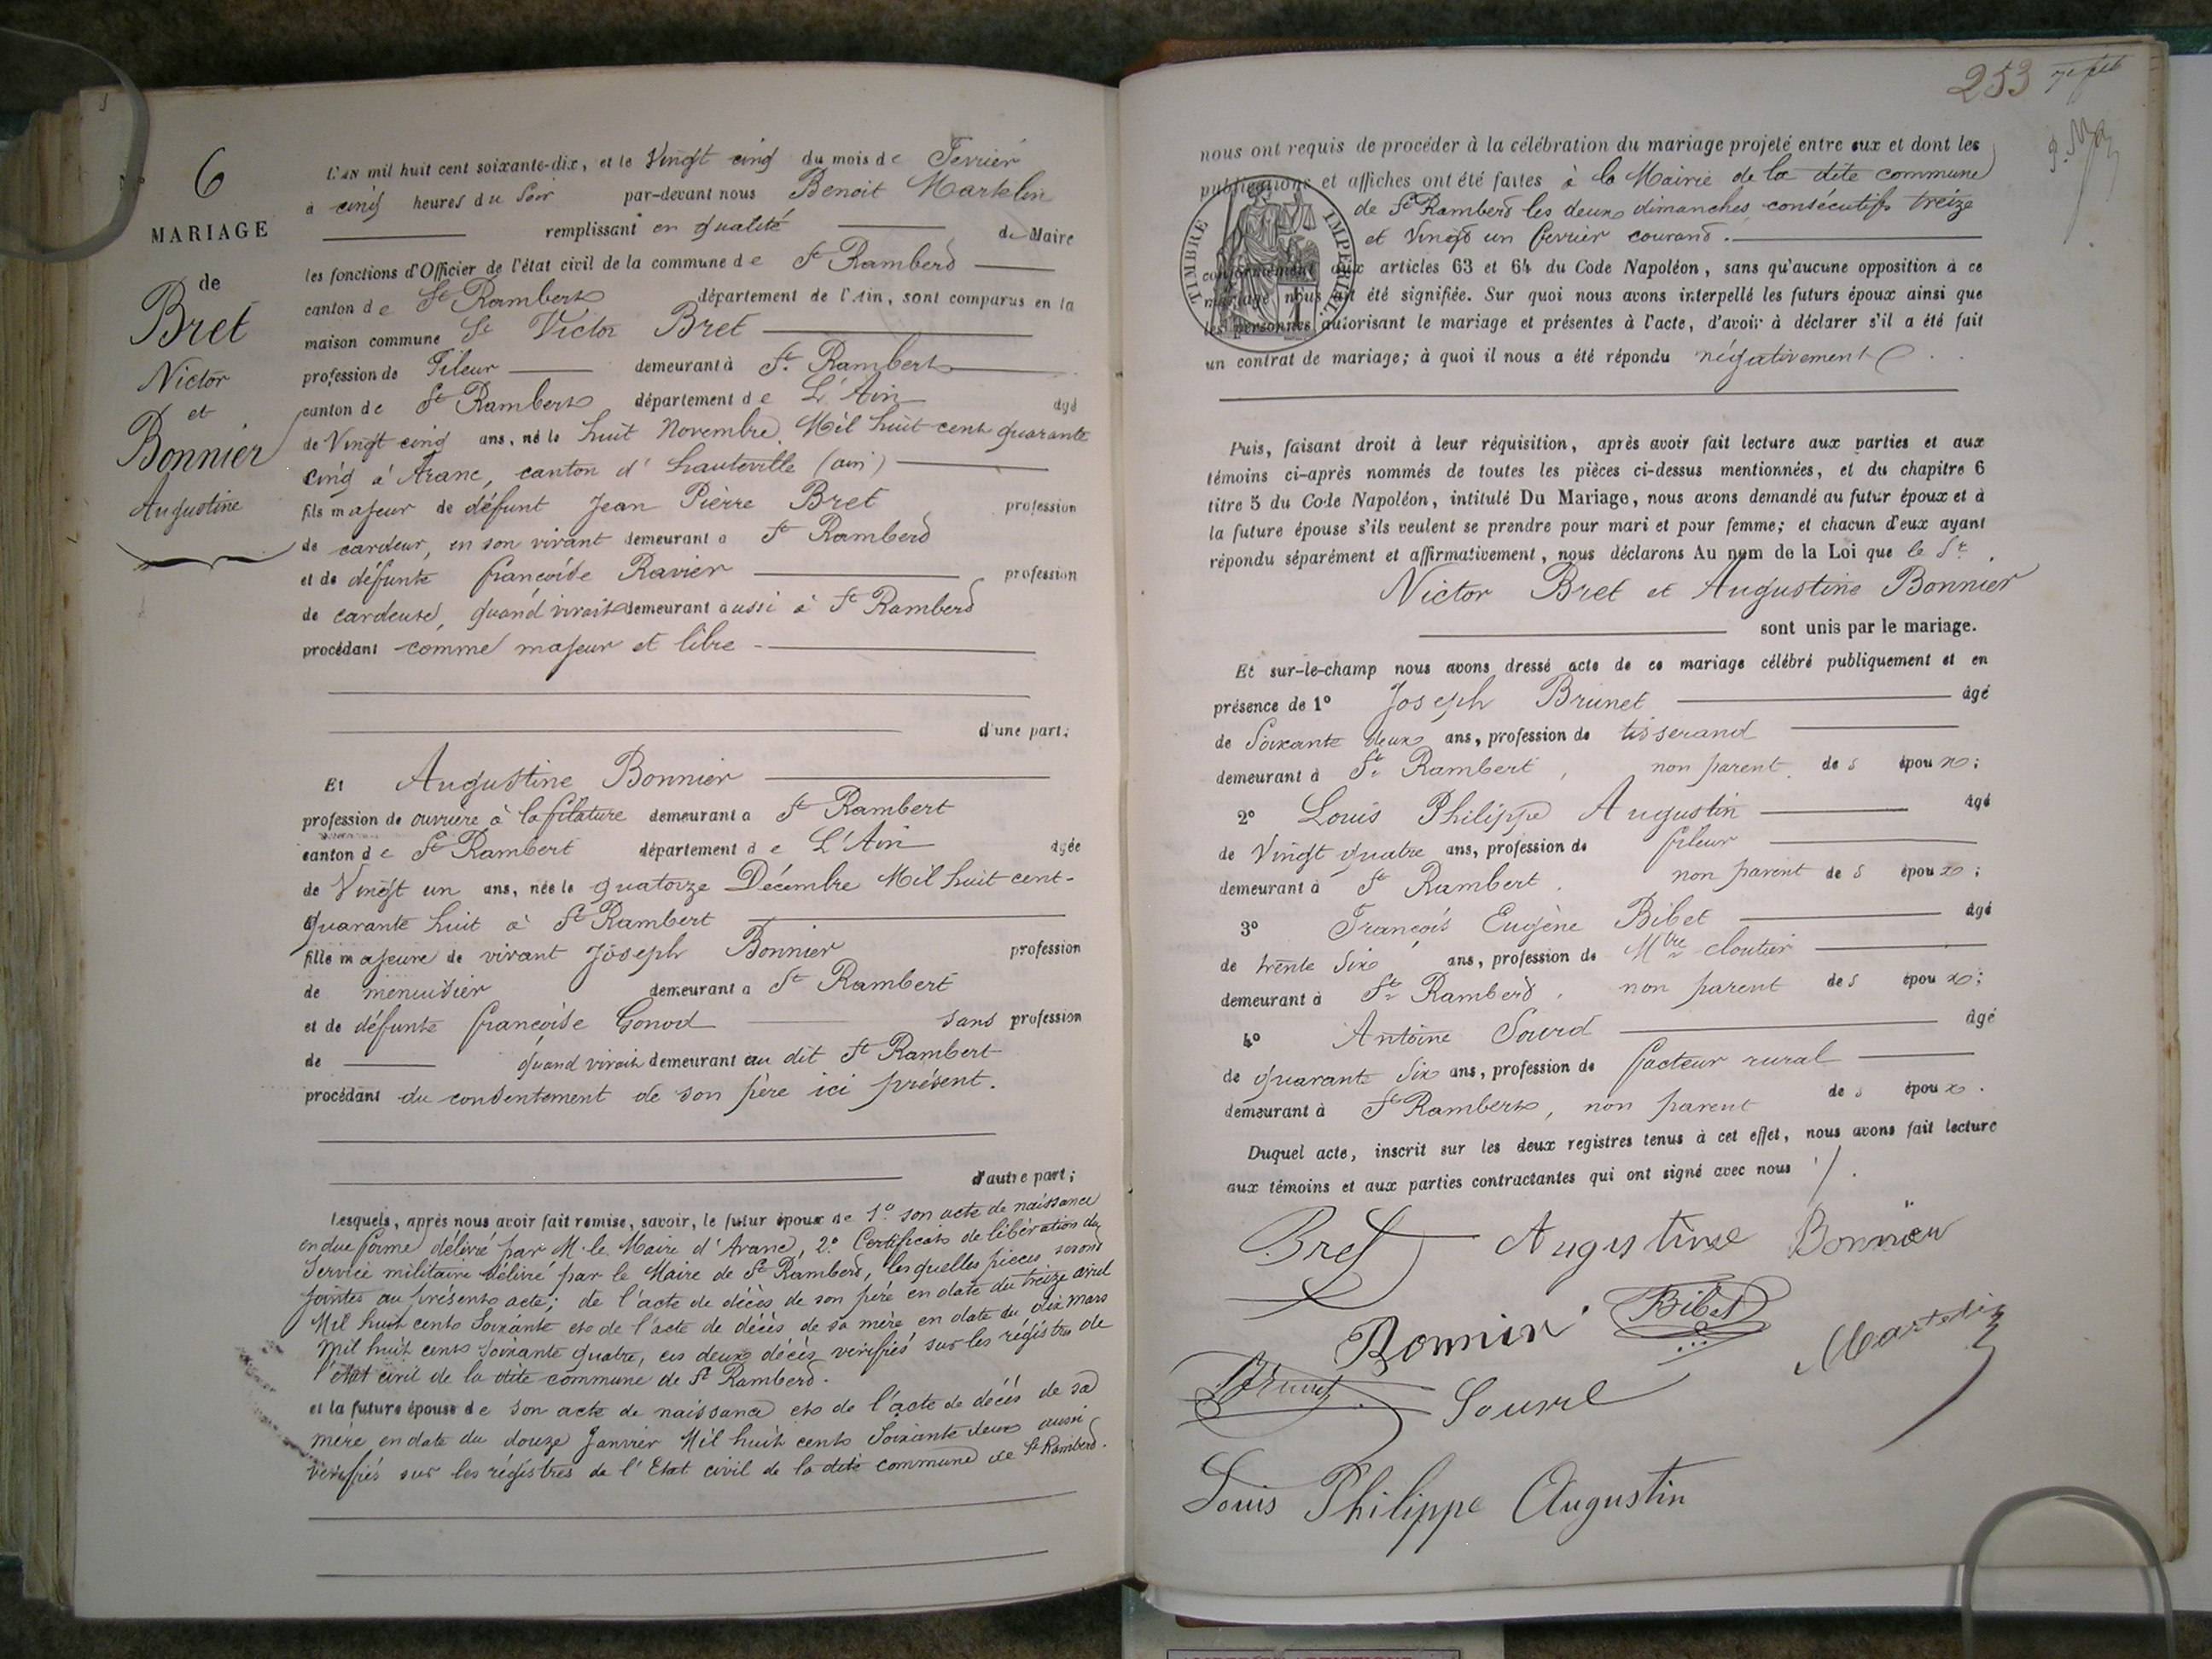 6
MARIAGE
de
Bret
Victor
et
Bonnier
Augustine
L'AN mil huit cent soixante-dix, et le Vingt cinq du mois de Fevrier
à cinq heures du Soir par-devant nous Benoit Martelin
remplissant en qualité de Maire
les fonctions d'Officier de l'état civil de la commune de St Rambert
canton de St Rambert département de l'Ain, sont comparus en la
maison commune Sr Victor Bret
profession de Fileur demeurant à St Rambert
canton de St Rambert département de L'Ain âgé
de Vingt cinq ans, né le huit Novembre Mil huit cent quarante
cinq à Aranc, canton d'hauteville (ain)
fils majeur de défunt Jean Pièrre Bret profession
de cardeur, en son vivant demeurant a St Rambert
et de défunte françoise Ravier profession
de cardeuse, quand vivait demeurant aussi à St Rambert
procédant comme majeur et libre
d'une part;
Et Augustine Bonnier
profession de ouvrière à la filature demeurant a St Rambert
canton de St Rambert département de L'Ain âgée
de Vingt un ans, née le quatorze Décembre Mil huit cent-
quarante huit à St Rambert
fille majeure de vivant Joseph Bonnier profession
de menuisier demeurant a St Rambert
et de défunte françoise Gonod sans profession
de quand vivait demeurant au dit St Rambert
procédant du consentement de son père ici présent.
d'autre part;
Lesquels, après nous avoir fait remise, savoir, le futur époux de 1º son acte de naissance
en due forme délivré par M. le Maire d'Aranc, 2º Certificat de libération du
Service militaire délivré par le Maire de St Rambert, les quelles pièces seront
jointes au présent acte; de l'acte de décès de son père en date du treize avril
Mil huit cent Soixante et de l'acte de décès de sa mère en date du dix mars
mil huit cent soixante quatre, ces deux décès vérifiés sur les régistres de
l'état civil de la dite commune de St Rambert.
et la future épouse de son acte de naissance et de l'acte de décès de sa
mère en date du douze Janvier Mil huit cent Soixante deux aussi
vérifiés sur les régistres de l'Etat civil de la dite commune de St Rambert.
253
nous ont requis de procéder à la célébration du mariage projeté entre eux et dont les
publications et affiches ont été faites à la Mairie de la dite commune
de St Rambert les deux dimanches consécutifs treize
et Vingt un fevrier courant.
TIMBRE IMPÉRIAL
conformément aux articles 63 et 64 du Code Napoléon, sans qu'aucune opposition à ce
mariage nous ait été signifiée. Sur quoi nous avons interpellé les futurs époux ainsi que
les personnes autorisant le mariage et présentes à l'acte, d'avoir à déclarer s'il a été fait
un contrat de mariage; à quoi il nous a été répondu négativement
Puis, faisant droit à leur réquisition, après avoir fait lecture aux parties et aux
témoins ci-après nommés de toutes les pièces ci-dessus mentionnées, et du chapitre 6
titre 5 du Code Napoléon, intitulé Du Mariage, nous avons demandé au futur époux et à
la future épouse s'ils veulent se prendre pour mari et pour femme; et chacun d'eux ayant
répondu séparément et affirmativement, nous déclarons Au nom de la Loi que le Sr
Victor Bret et Augustine Bonnier
sont unis par le mariage.
Et sur-le-champ nous avons dressé acte de ce mariage célébré publiquement et en
présence de 1º Joseph Brunet âgé
de Soixante deux ans, profession de tisserand
demeurant à St Rambert, non parent des époux;
2º Louis Philippe Augustin âgé
de Vingt quatre ans, profession de fileur
demeurant à St Rambert, non parent des époux;
3º François Eugène Bibet âgé
de trente Six ans, profession de Mtre cloutier
demeurant à St Rambert, non parent des époux;
4º Antoine Sourd âgé
de quarante Six ans, profession de facteur rural
demeurant à St Rambert, non parent des époux.
Duquel acte, inscrit sur les deux registres tenus à cet effet, nous avons fait lecture
aux témoins et aux parties contractantes qui ont signé avec nous
Bret Augustine Bonnier
Bonnier Bibet Martelin
Brunet Sourd
Louis Philippe Augustin